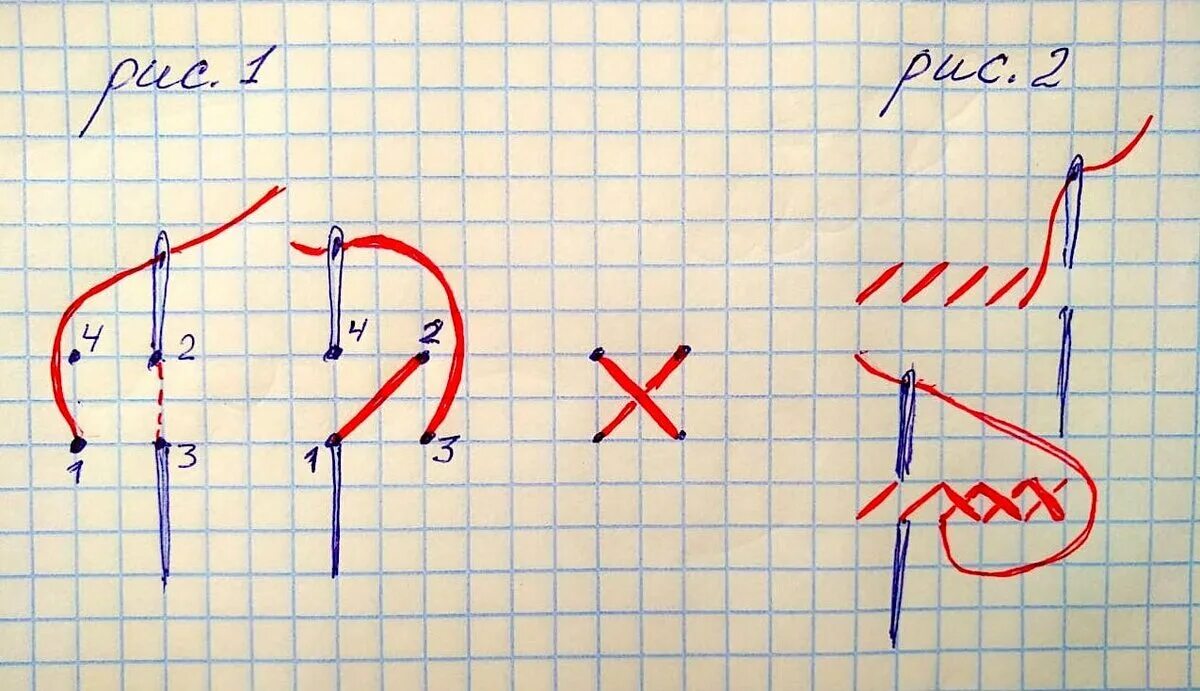 рис. 1
рис. 2
4 2
1 3
4 2
1 3